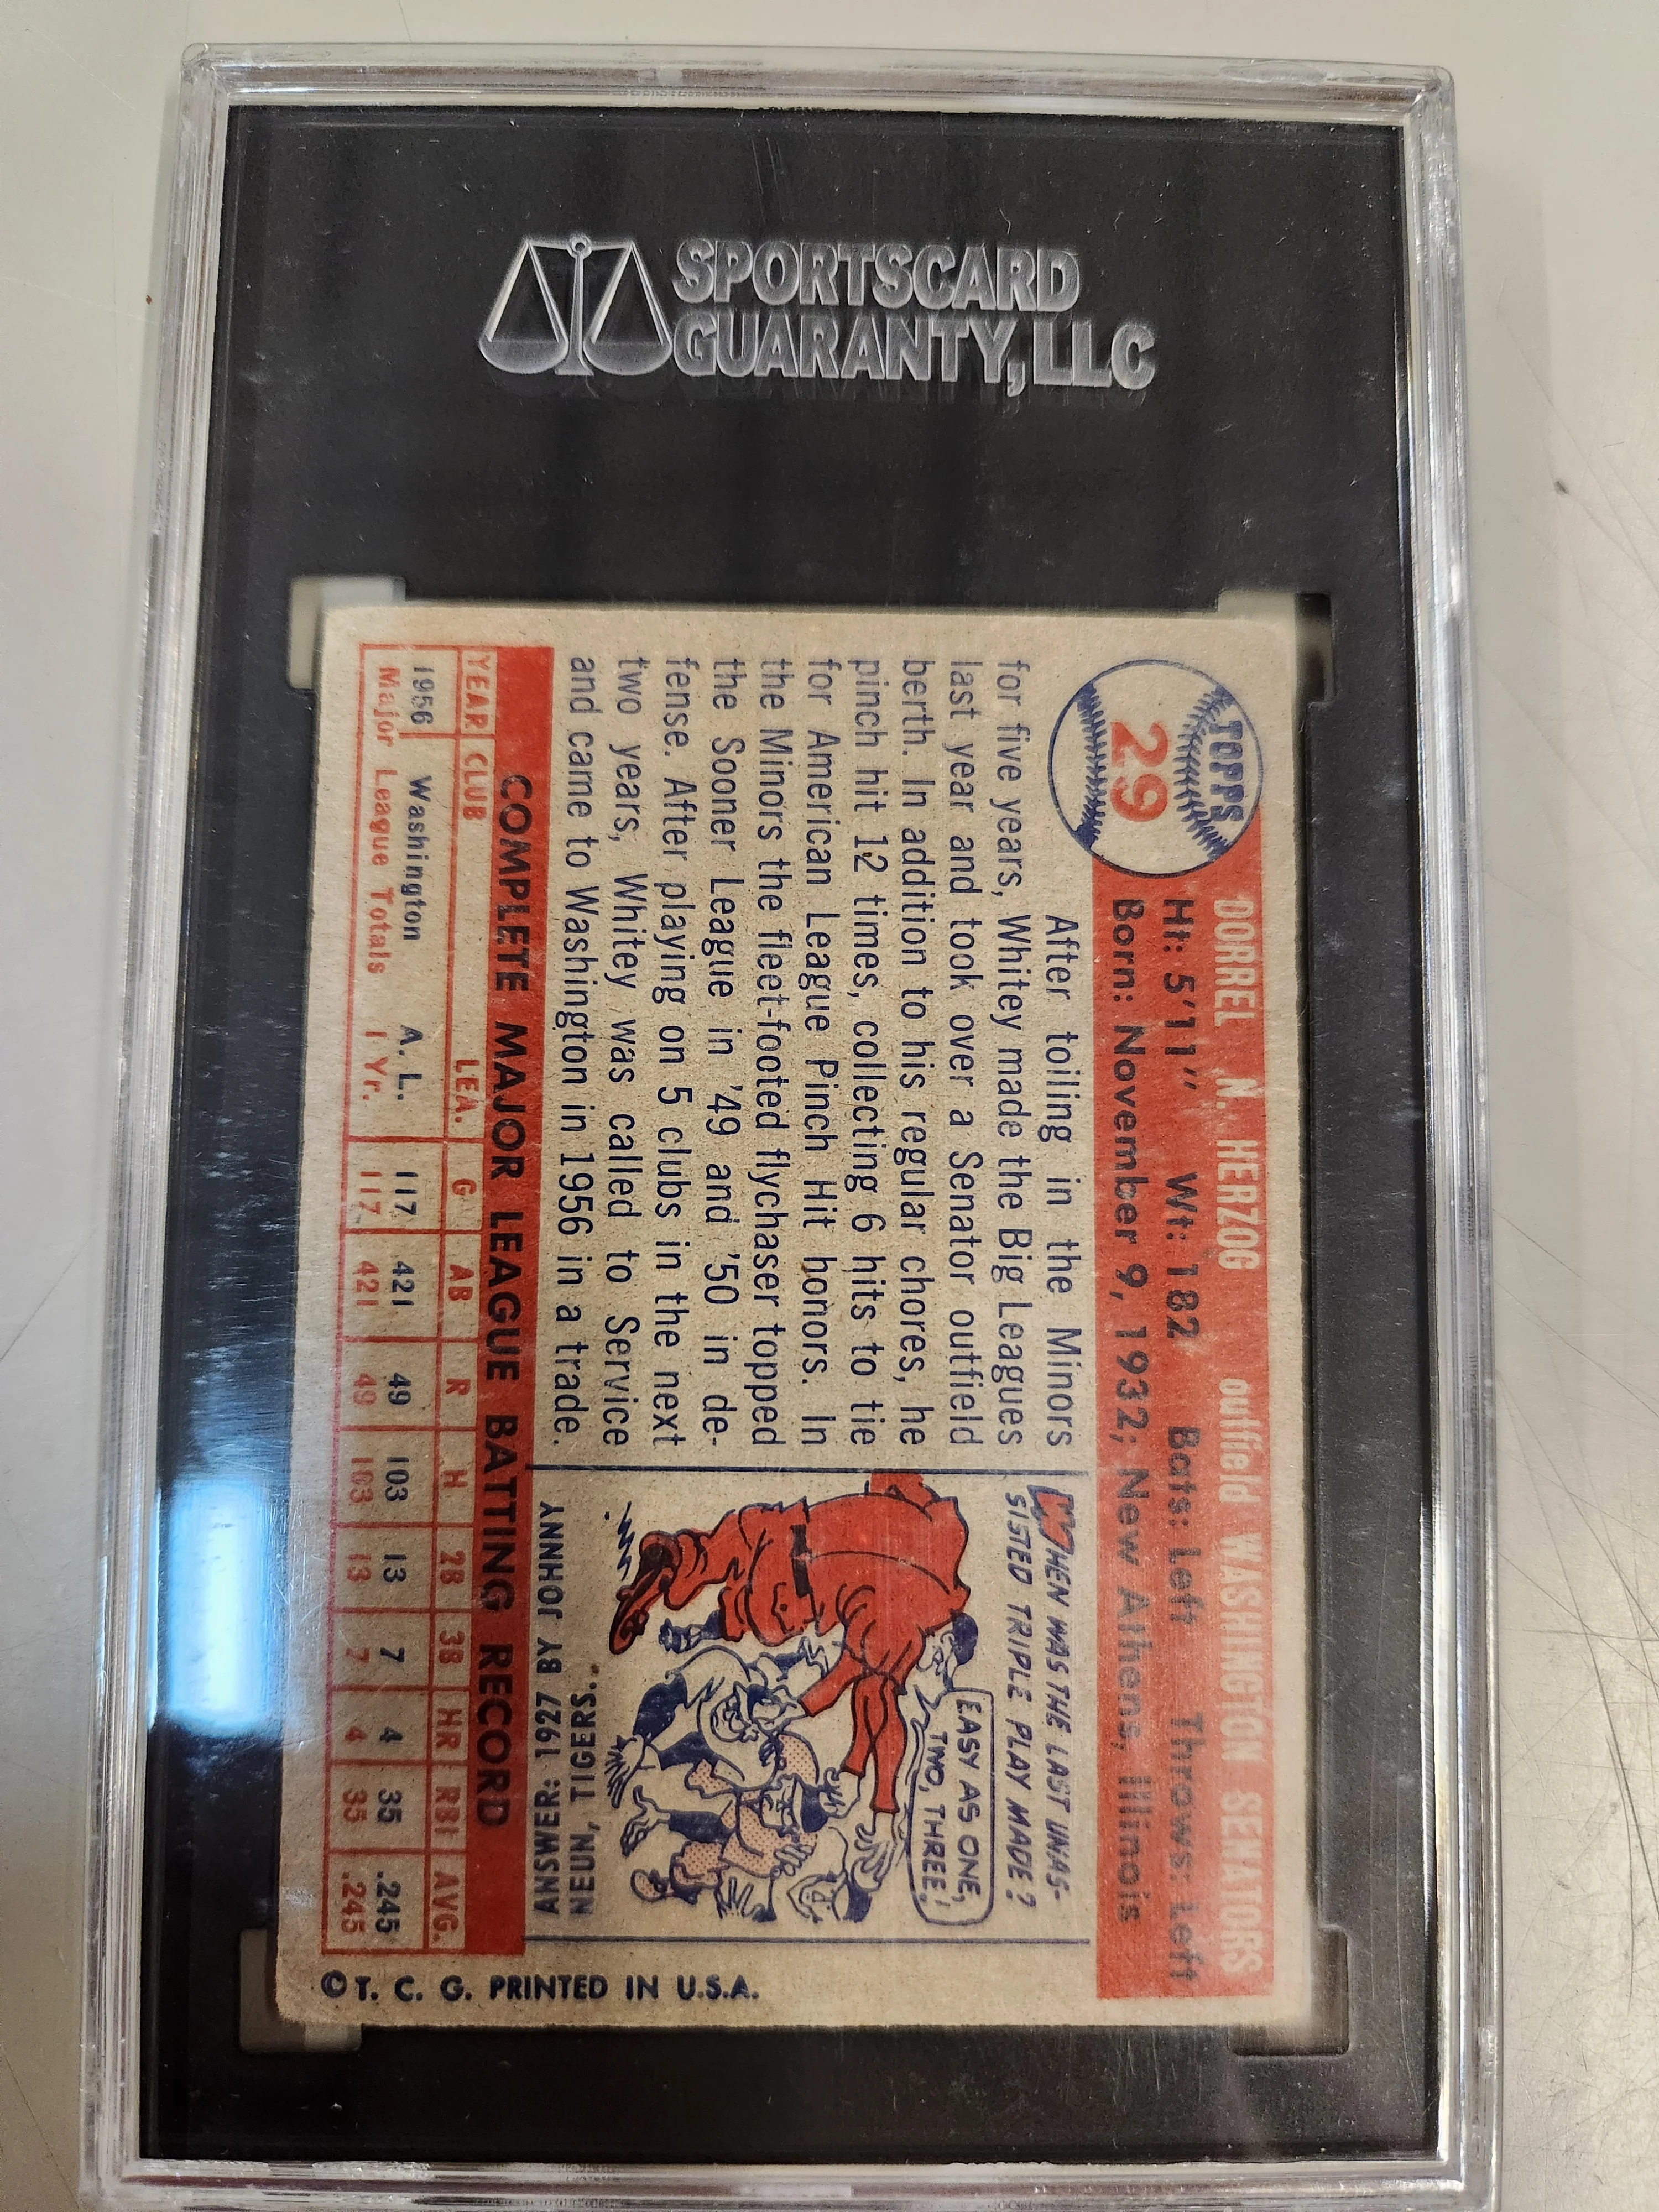 SPORTSCARD
GUARANTY, LLC
TOPPS
29
DORREL N. HERZOG outfield WASHINGTON SENATORS
Ht: 5'11" Wt: 182 Bats: Left Throws: Left
Born: November 9, 1932; New Athens, Illinois
After toiling in the Minors
for five years, Whitey made the Big Leagues
last year and took over a Senator outfield
berth. In addition to his regular chores, he
pinch hit 12 times, collecting 6 hits to tie
for American League Pinch Hit honors. In
the Minors the fleet-footed flychaser topped
the Sooner League in '49 and '50 in de-
fense. After playing on 5 clubs in the next
two years, Whitey was called to Service
and came to Washington in 1956 in a trade.
WHEN WAS THE LAST UNAS-
SISTED TRIPLE PLAY MADE?
EASY AS ONE,
TWO, THREE!
ANSWER: 1927 BY JOHNNY
NEUN, TIGERS.
COMPLETE MAJOR LEAGUE BATTING RECORD
YEAR CLUB LEA. G AB R H 2B 3B HR RBI AVG.
1956 Washington A. L. 117 421 49 103 13 7 4 35 .245
Major League Totals 1 Yr. 117 421 49 103 13 7 4 35 .245
© T. C. G. PRINTED IN U.S.A.